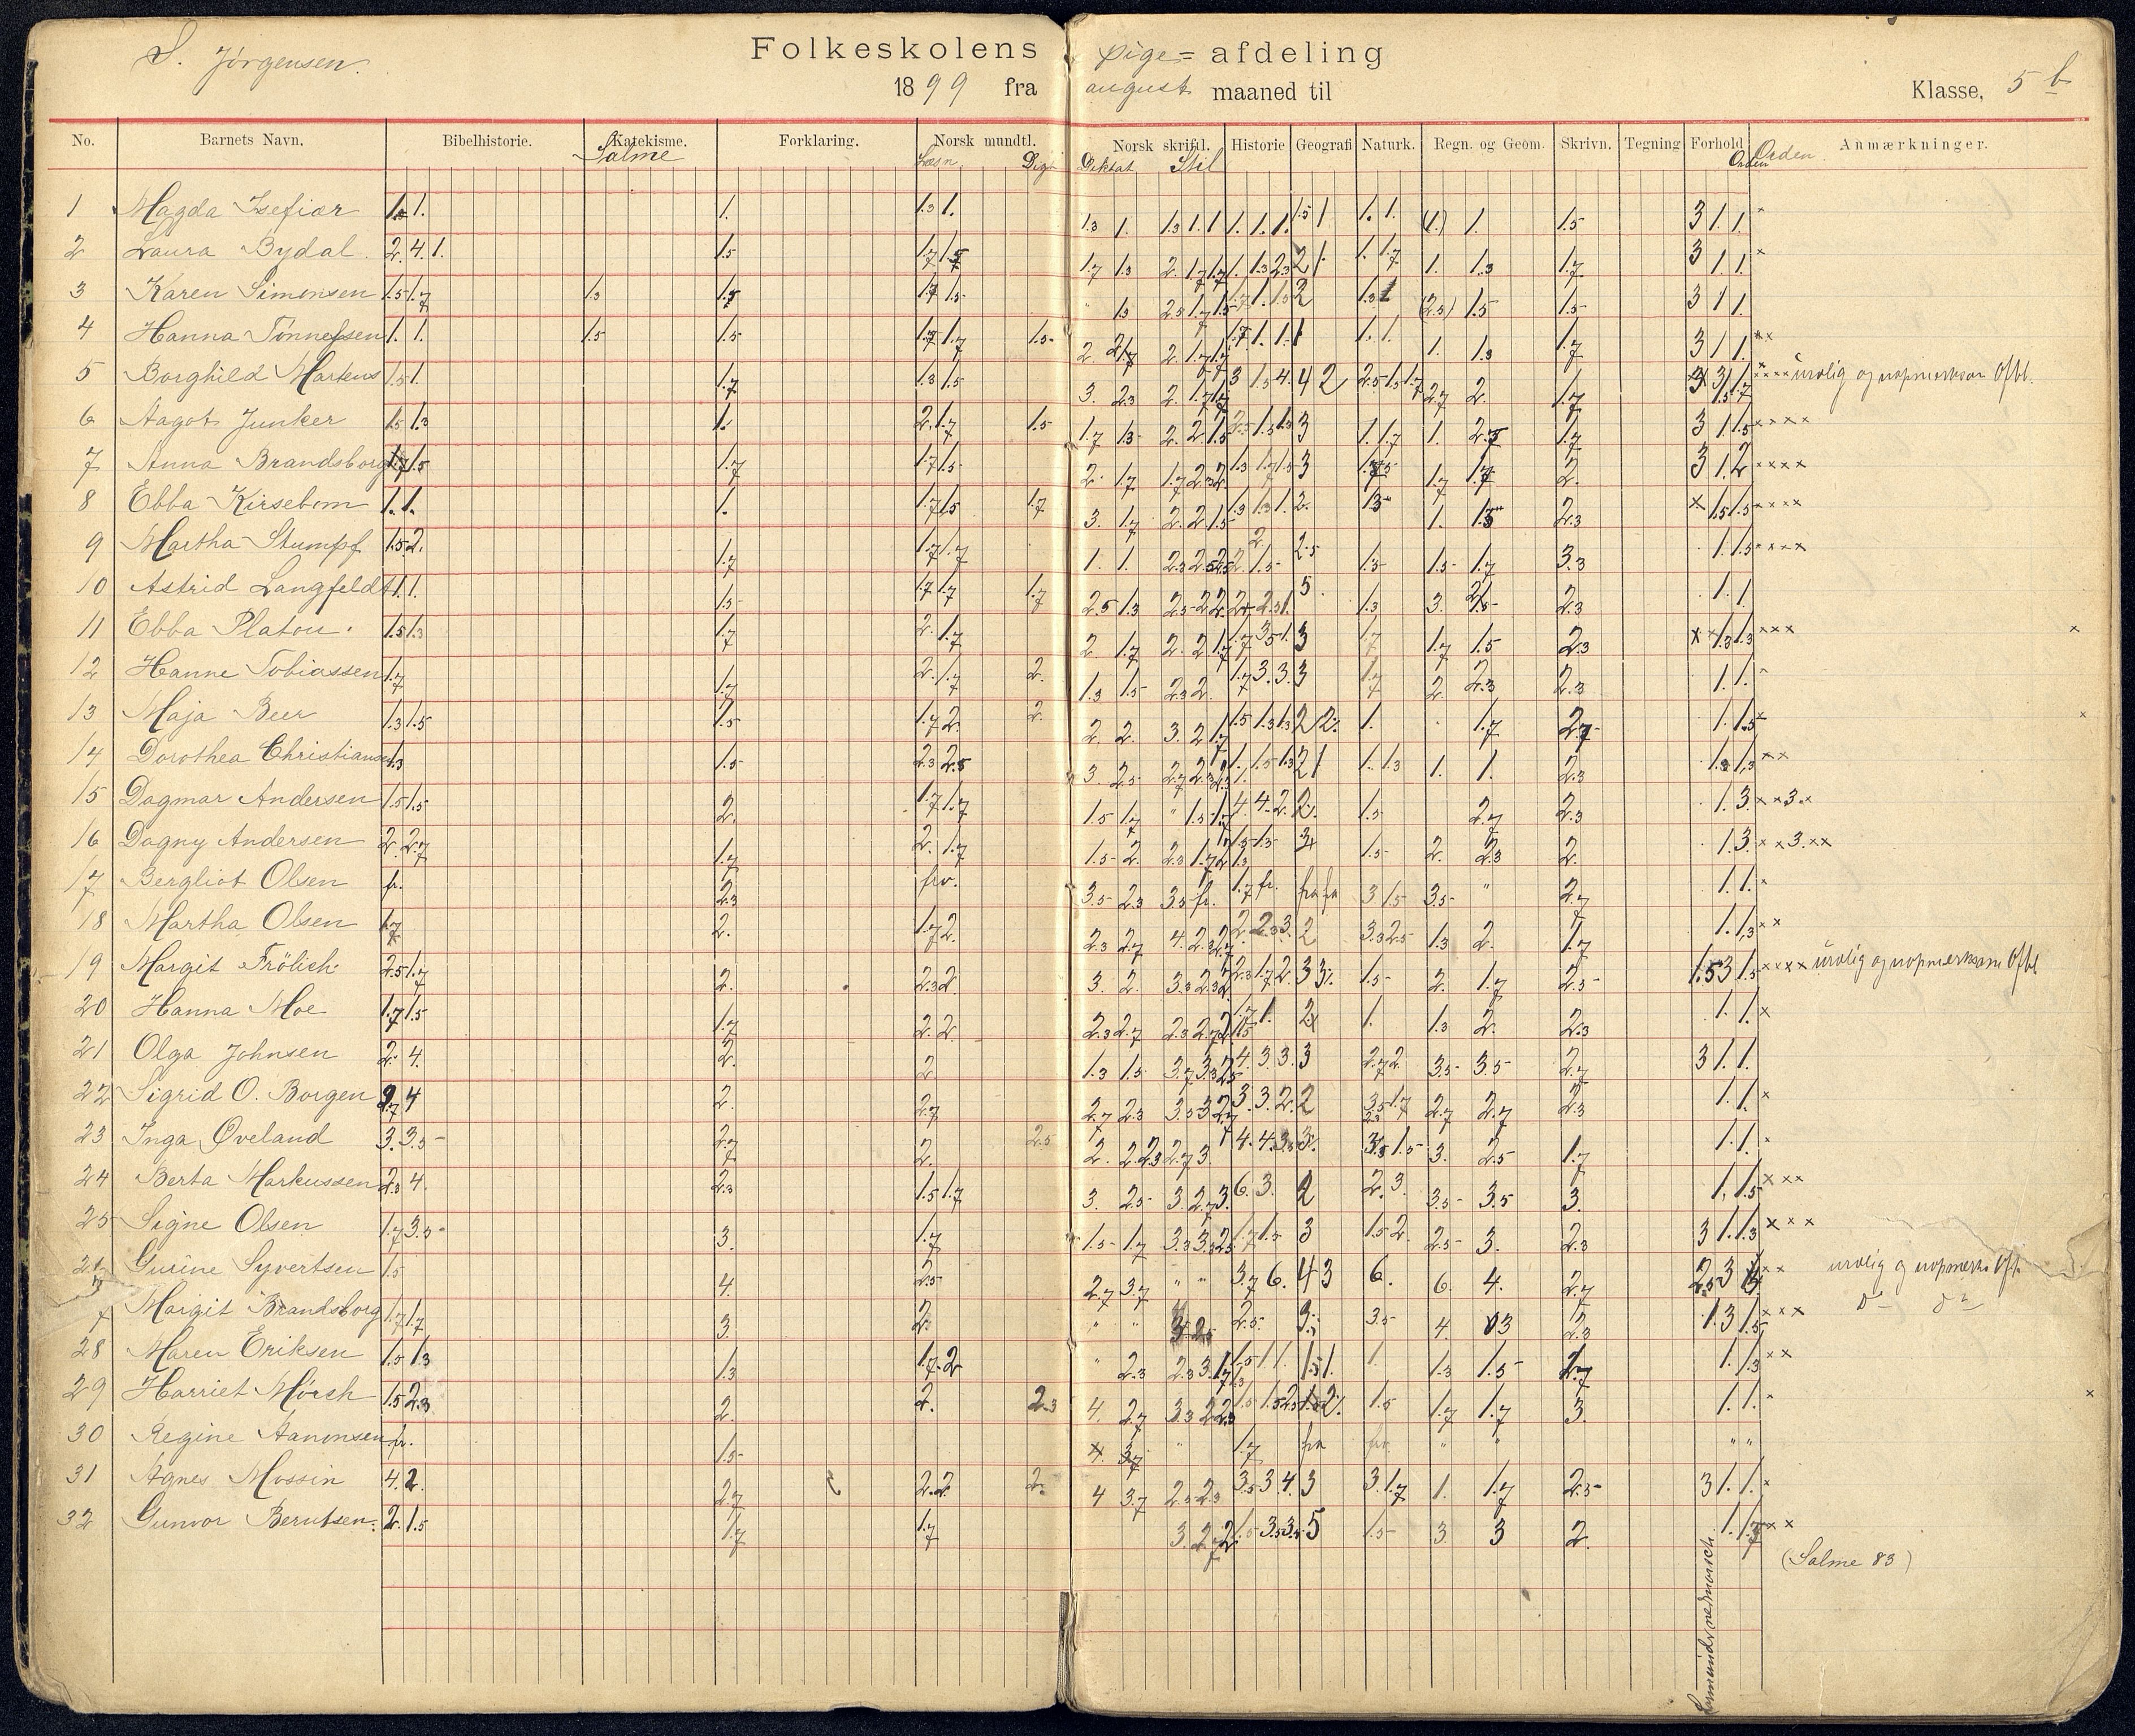 S. Jørgensen.
Folkeskolens pige= afdeling
1899 fra august maaned til Klasse, 5 b
No. Barnets Navn. Bibelhistorie. Katekisme. Forklaring. Norsk mundtl. Norsk skriftl. Historie Geografi Naturk. Regn. og Geom. Skrivn. Tegning Forhold Anmærkninger.
Salme Læsn. Digt Diktat Stil Orden Orden
1 Magda Isefiær 1. 1. 1. 1.3 1. 1.3 1. 1.3 1. 1 1. 1. 1. 1.5 1 1. 1. (1.) 1. 1.5 3 1. 1. x
2 Laura Bydal. 2. 4. 1. 1.5 1.7 1.5 1.7 1.3 2. 1.7 1.7 1. 1.3 2.3 2 1. 1. 1.7 1. 1.3 1.7 3 1. 1. x
3 Karen Simonsen 1.5 1.7 1.3 1.5 1.7 1.5 " 1.5 2.5 1.7 1.5 1.7 1. 1.5 2 1.3 1 (2.5) 1.5 1.5 3 1 1.
4 Hanna Tønnessen 1. 1. 1.5 1.5 1.7 1.7 1.5 2. 1.7 2. 1.7 1.7 1.7 1. 1. 1 1. 1. 1. 1.3 1.7 3 1 1. xx
5 Borghild Martens 1.5 1. 1.7 1.3 1.5 3. 2.3 2. 1.7 1.7 3 1.5 4. 4 2 2.5 1.5 1.7 2.7 2. 1.7 3 3 1.5 1.7 xxxx urolig og uopmerksom Ofte.
6 Aagot Junker 1.5 1.3 1. 2. 1.7 1.5 1.7 1.3 2. 2 1.5 2.3 1.5 1.3 3 1. 1.7 1. 2.3 1.7 3 1. 1.5 xxxx
7 Anna Brandsborg 1.7 1.5 1.7 1.7 1.5 2. 1.7 1.7 2.3 2. 1.3 1.7 1.3 3 1.7 1.7 2. 3 1. 2 xxxx
8 Ebba Kirsebom 1. 1. 1. 1.7 1.5 1.7 3. 1.7 2. 2 1.5 1.3 1.3 1. 2. 1.3 1. 1.5 2.3 x 1.5 1.5 xxxx
9 Martha Stumpf 1.5 2. 1.7 1.7 1.7 1. 1. 2.3 2.5 2.5 2. 1.5 2.5 1.3 1.5 1.7 3.3 1. 1.5 xxxx
10 Astrid Langfeldt 1. 1. 1.5 1.7 1.7 1.7 2.5 1.3 2.5 2 2. 2. 2.3 1. 5. 1.3 3. 2.3 1. 1
11 Ebba Platou. 1.5 1.3 1.7 2. 1.7 2 1.7 2. 2 1.7 1.7 3.5 1. 3 1.7 1.7 1.5 2.3 x x 1.3 1.3 xxx x
12 Hanne Tobiassen 1.7 1.7 2. 1.7 2. 1.3 1.5 2.3 2. 1.7 3. 3. 3 1.7 2. 2.3 2.3 1. 1. x
13 Maja Beer 1.3 1.5 1.5 1.7 2. 2. 2. 2. 3. 2 1.7 1.5 1.3 1.3 2 2. 1. 1.7 2.7 1. 1.5 x x
14 Dorothea Christiansen 1.3 1.5 2.3 2.5 3. 2.5 2.7 2.3 2.3 1. 1.5 1.3 2 1 1. 1.3 1. 1. 2.3 1.3 1.3 xx
15 Dagmar Andersen 1.5 1.5 2. 1.7 1.7 1.5 1.7 " 1.5 1.7 4. 4. 2. 2. 1.5 2.7 2.3 1. 3. xx3.x
16 Dagny Andersen 2. 2.7 1.7 2. 1.7 1.5 2. 2.3 1.7 2 1.5 1.5 1.5 2. 2.3 2. 1. 3. xx3.xx
17 Bergliot Olsen fr. 2.3 frv. 3.5 2.3 3.5 fr. 1.7 fr. fra fra 3 1.5 3.5 " 2.7 1. 1. x
18 Martha Olsen 1.7 2. 1.7 2. 2.3 2.7 4. 2.3 2.7 2. 2.3 3. 2 3.3 2.5 1.3 2. 1.7 1. 1.3 xx
19 Margit Frölich 2.5 1.7 2. 2.3 2. 3. 2. 3.3 2.3 2. 2.3 1.7 2. 3 3. 1.5 2. 1.7 2.5 1.5 3 1.5 xxxx urolig og uopmerksom Ofte
20 Hanna Moe 1.7 1.5 1.7 2. 2. 2.3 2.7 2.3 2.7 2 1.7 1. 2 1. 1.3 2. 2.3 1. 1. x
21 Olga Johnsen 2. 4. 2. 2 1.3 1.5 3.7 3.3 2.5 4. 3. 3. 3 2.7 2. 3.5 3.5 2.7 3 1. 1.
22 Sigrid O. Borgen 2.7 4 2. 2.7 2.7 2.3 3.5 3 2.7 3. 3. 2. 2 3.5 1.7 2.7 2.7 2.3 1. 1. x
23 Inga Øveland 3. 3.5 2.7 2. 2.5 2. 2. 2.3 2.7 3. 4. 4. 3. 3. 3.5 1.5 3. 2.5 1.7 1. 1. x
24 Berta Markussen 2.3 4. 2.3 1.5 1.7 3. 2.5 3. 2.7 3. 6. 3. 2 2. 3. 3.5 3.5 3. 1. 1.5 xxx
25 Signe Olsen 1.7 3.5 3. 1.7 1.5 1.7 3.3 3.3 2.5 1.7 1.5 3 1.5 2. 2.5 3. 2.3 3 1. 1.3 xxx
Gurine Syvertsen 1.5 4. 2.5 2.7 3.7 " " 3.7 6. 4 3 6. 6. 4. 2.7 2.5 3 xx urolig og uopmerks. Ofte.
Margit Brandsborg 1.7 1.7 3. 2. " " 3. 2.5 2.5 3. 3.5 4. 3 2.3 1. 3 1.5 xxx do do
28 Maren Eriksen 1.5 1.3 1.3 1.7 2 " 2.3 2.3 3. 1.7 1.5 1 1. 1.5 1. 1. 1.3 1.5 2.7 1. 1.3 xx
29 Harriet Mörch 1.5 2.3 2. 2. 2.3 4. 2.7 3.3 2 2.3 1.5 1.5 2.5 2. 1.5 1.7 1.7 3. 1. 1. x x
30 Regine Aanonsen fr. 1.5 4. 3.7 " 1.7 fra fra " " " "
31 Agnes Mossin 4. 2. 2.7 2. 2. 2. 4 3.7 2.5 2.3 3.5 3 4. 3 3. 1.7 1. 1.7 2.5 3 1. 1. x
32 Gunvor Berntsen. 2. 1.5 1.7 1.7 3. 2.7 2. 1.5 3.5 3.5 5 1.5 3. 3 2. 1. 1.7 xx
(Salme 83)